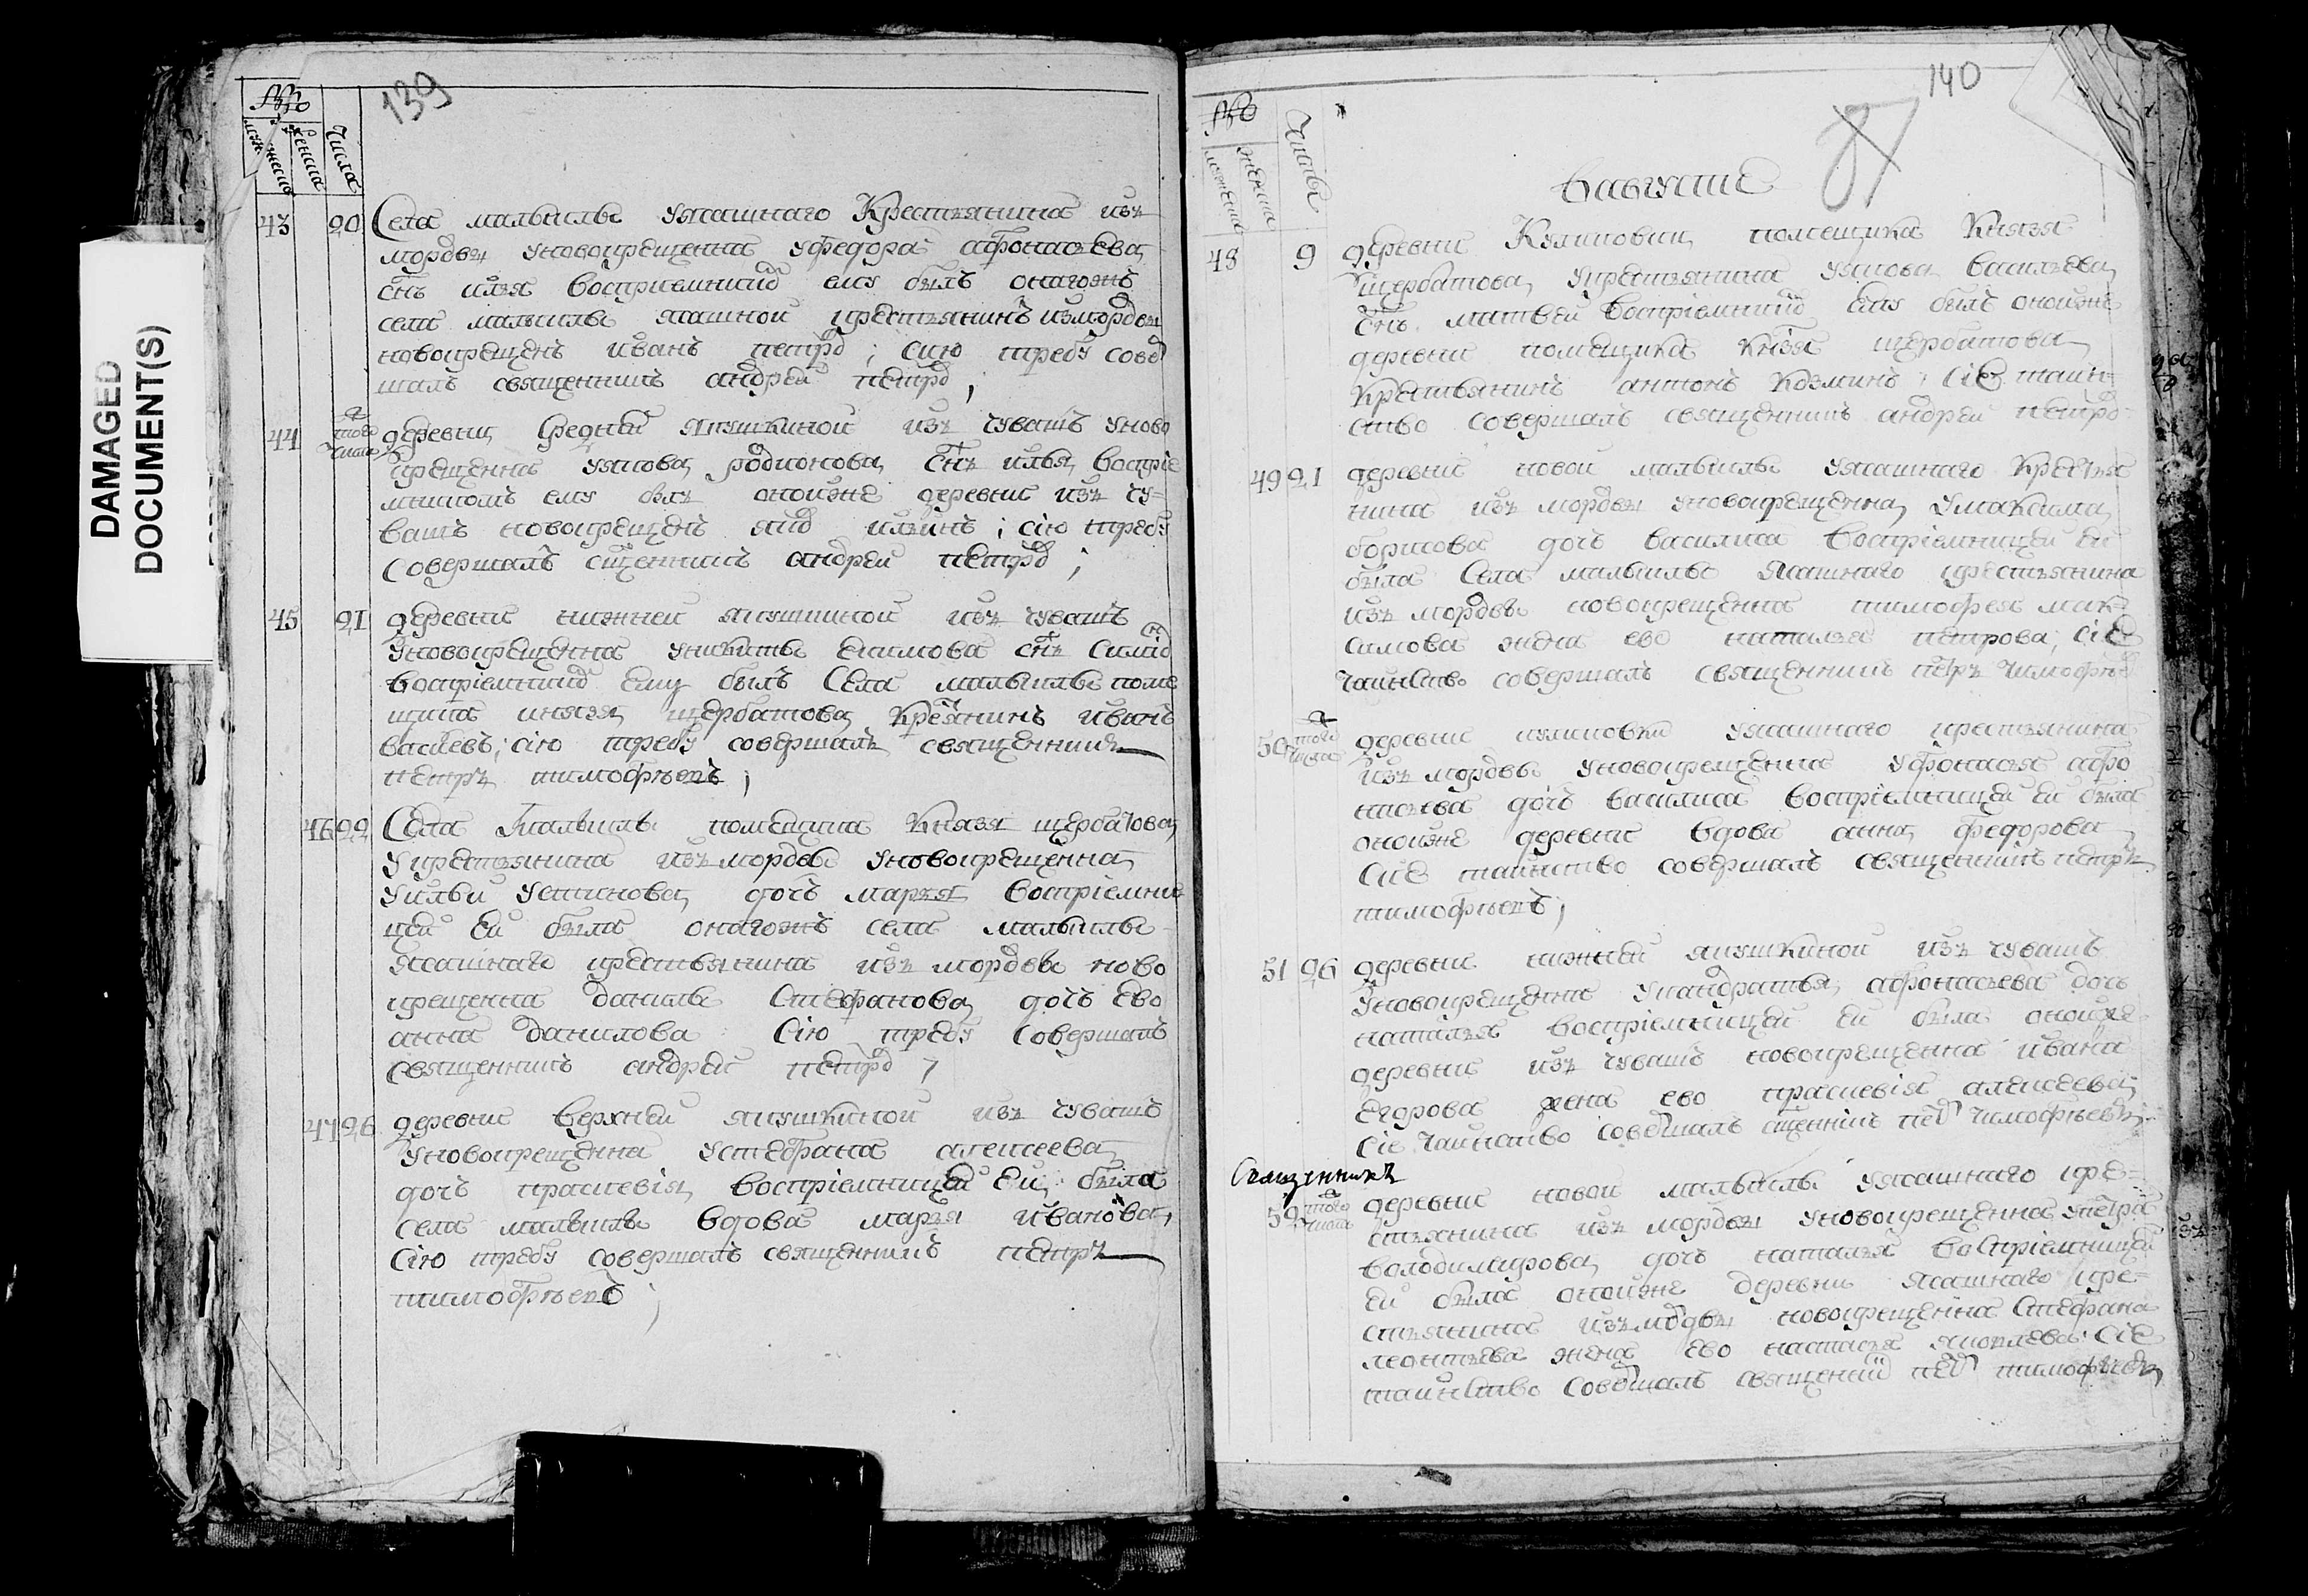 DAMAGED
DOCUMENT(S)
139
№
мужеска
женска
Числа
43 20 Села малыклы уясашнаго Крестьянина изъ
мордвы уновокрещенна уфедора афонасьева
снъ илья восприемникъ ему былъ онагожъ
села малыклы ясашной крестьянинъ измордвы
новокрещенъ иванъ петро; сию требу сове
шалъ священникъ андрей петро;
44 того числа деревни средней якушкиной изъ чувашъ уново
крещенна уякова родионова снъ илья воспрiе
мникомъ ему былъ оноиже деревни изъ чу-
вашъ новокрещенъ яко ильинъ; сiю требу
совершалъ сщенникъ андреи петро;
45 21 деревни нижнеи якушкиной изъ чувашъ
уновокрещенна уникиты екимова снъ симио
воспрiемнико ему былъ Села малыклы поме
щика князя щербатова Кресянинъ иванъ
васлевъ; сiю требу совершалъ священникъ
петръ тимофѣевъ;
46 22 Села Малыклы помещика Князя щербатова
укрестьянина изъ мордвы уновокрещенна
уильи устинова дочь марья воспрiемни
цеи еи была онагожъ села малыклы
ясашнаго крестьянина изъ мордвы ново
крещенна данилы Стефанова дочь ево
анна данилова Сiю требу Совершалъ
священникъ андреи петро;
47 26 деревни верхнеи якушкиной изъ чувашъ
уновокрещенна устефана алексеева
дочь праскевiя воспрiемницеи еи была
села малыклы вдова марья иванова,
сiю требу совершалъ священникъ петръ
тимофѣевъ;
140
87
№
мужеска
женска
Числы
вавгусте
48 9 деревни Куликовки помещика Князя
щербатова укрестьянина уякова васильева
снъ матвеи воспрiемникъ ему былъ оноиже
деревни помещика Князя щербатова
Крестьянинъ антонъ козминъ; сiе таин-
ство совершалъ священникъ андреи петро
49 21 деревни новои малыклы уясашнаго Крестья
нина изъ мордвы уновокрещенна умаксима
борисова дочь василиса воспрiемницеи еи
была Села малыклы ясашнаго крестьянина
изъ мордвы новокрещенна тимофея мак-
симова жена ево наталья петрова; сiе
таинство совершалъ священникъ петръ тимофѣе
50 того числа деревни куликовки уясашнаго крестьянина
изъ мордвы уновокрещенна уфонасья афо
насьева дочь василиса воспрiемницеи еи была
оноиже деревни вдова анна федорова
Сие таинство совершалъ священникъ петръ
тимофѣевъ;
51 26 деревни нижнеи якушкиной изъ чувашъ
уновокрещенна укандратья афонасьева дочь
наталья воспрiемницеи еи была оноиже
деревни изъ чувашъ новокрещенна ивана
егорова жена ево праскевiя алексеева
сiе таинство совешалъ сщеникъ пе тимофѣевъ;
Священникъ
52 того числа деревни новои малыклы уясашнаго кре-
стьянина изъ мордвы уновокрещенна упетра
володимирова дочь наталья воспрiемницеи
еи была оноиже деревни ясашнаго кре-
стьянина изъ мордвы новокрещенна Стефана
леонтьева жена ево настасья яковлева. Сiе
таинство совешалъ священни пе тимофѣевъ